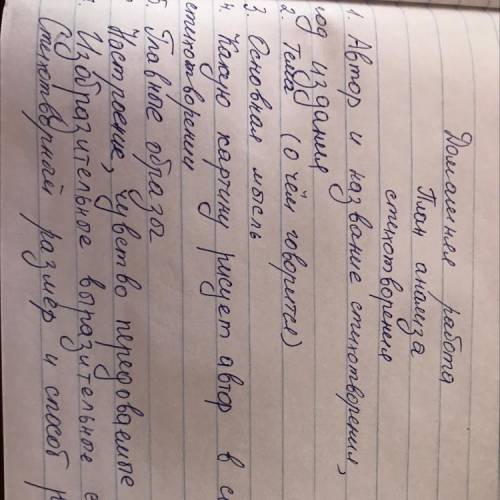 Домашняя работа
План анализа
стихотворения
1. Автор и название стихотворения,
год издания
2. Тема (о чём говорится)
3. Основная мысль
4. Какую картину рисует автор в
стихотворении
5. Главные образы
Настроение, чувство передоваемые
7. Изобразительное выразительное
Стихотворный размер и способ